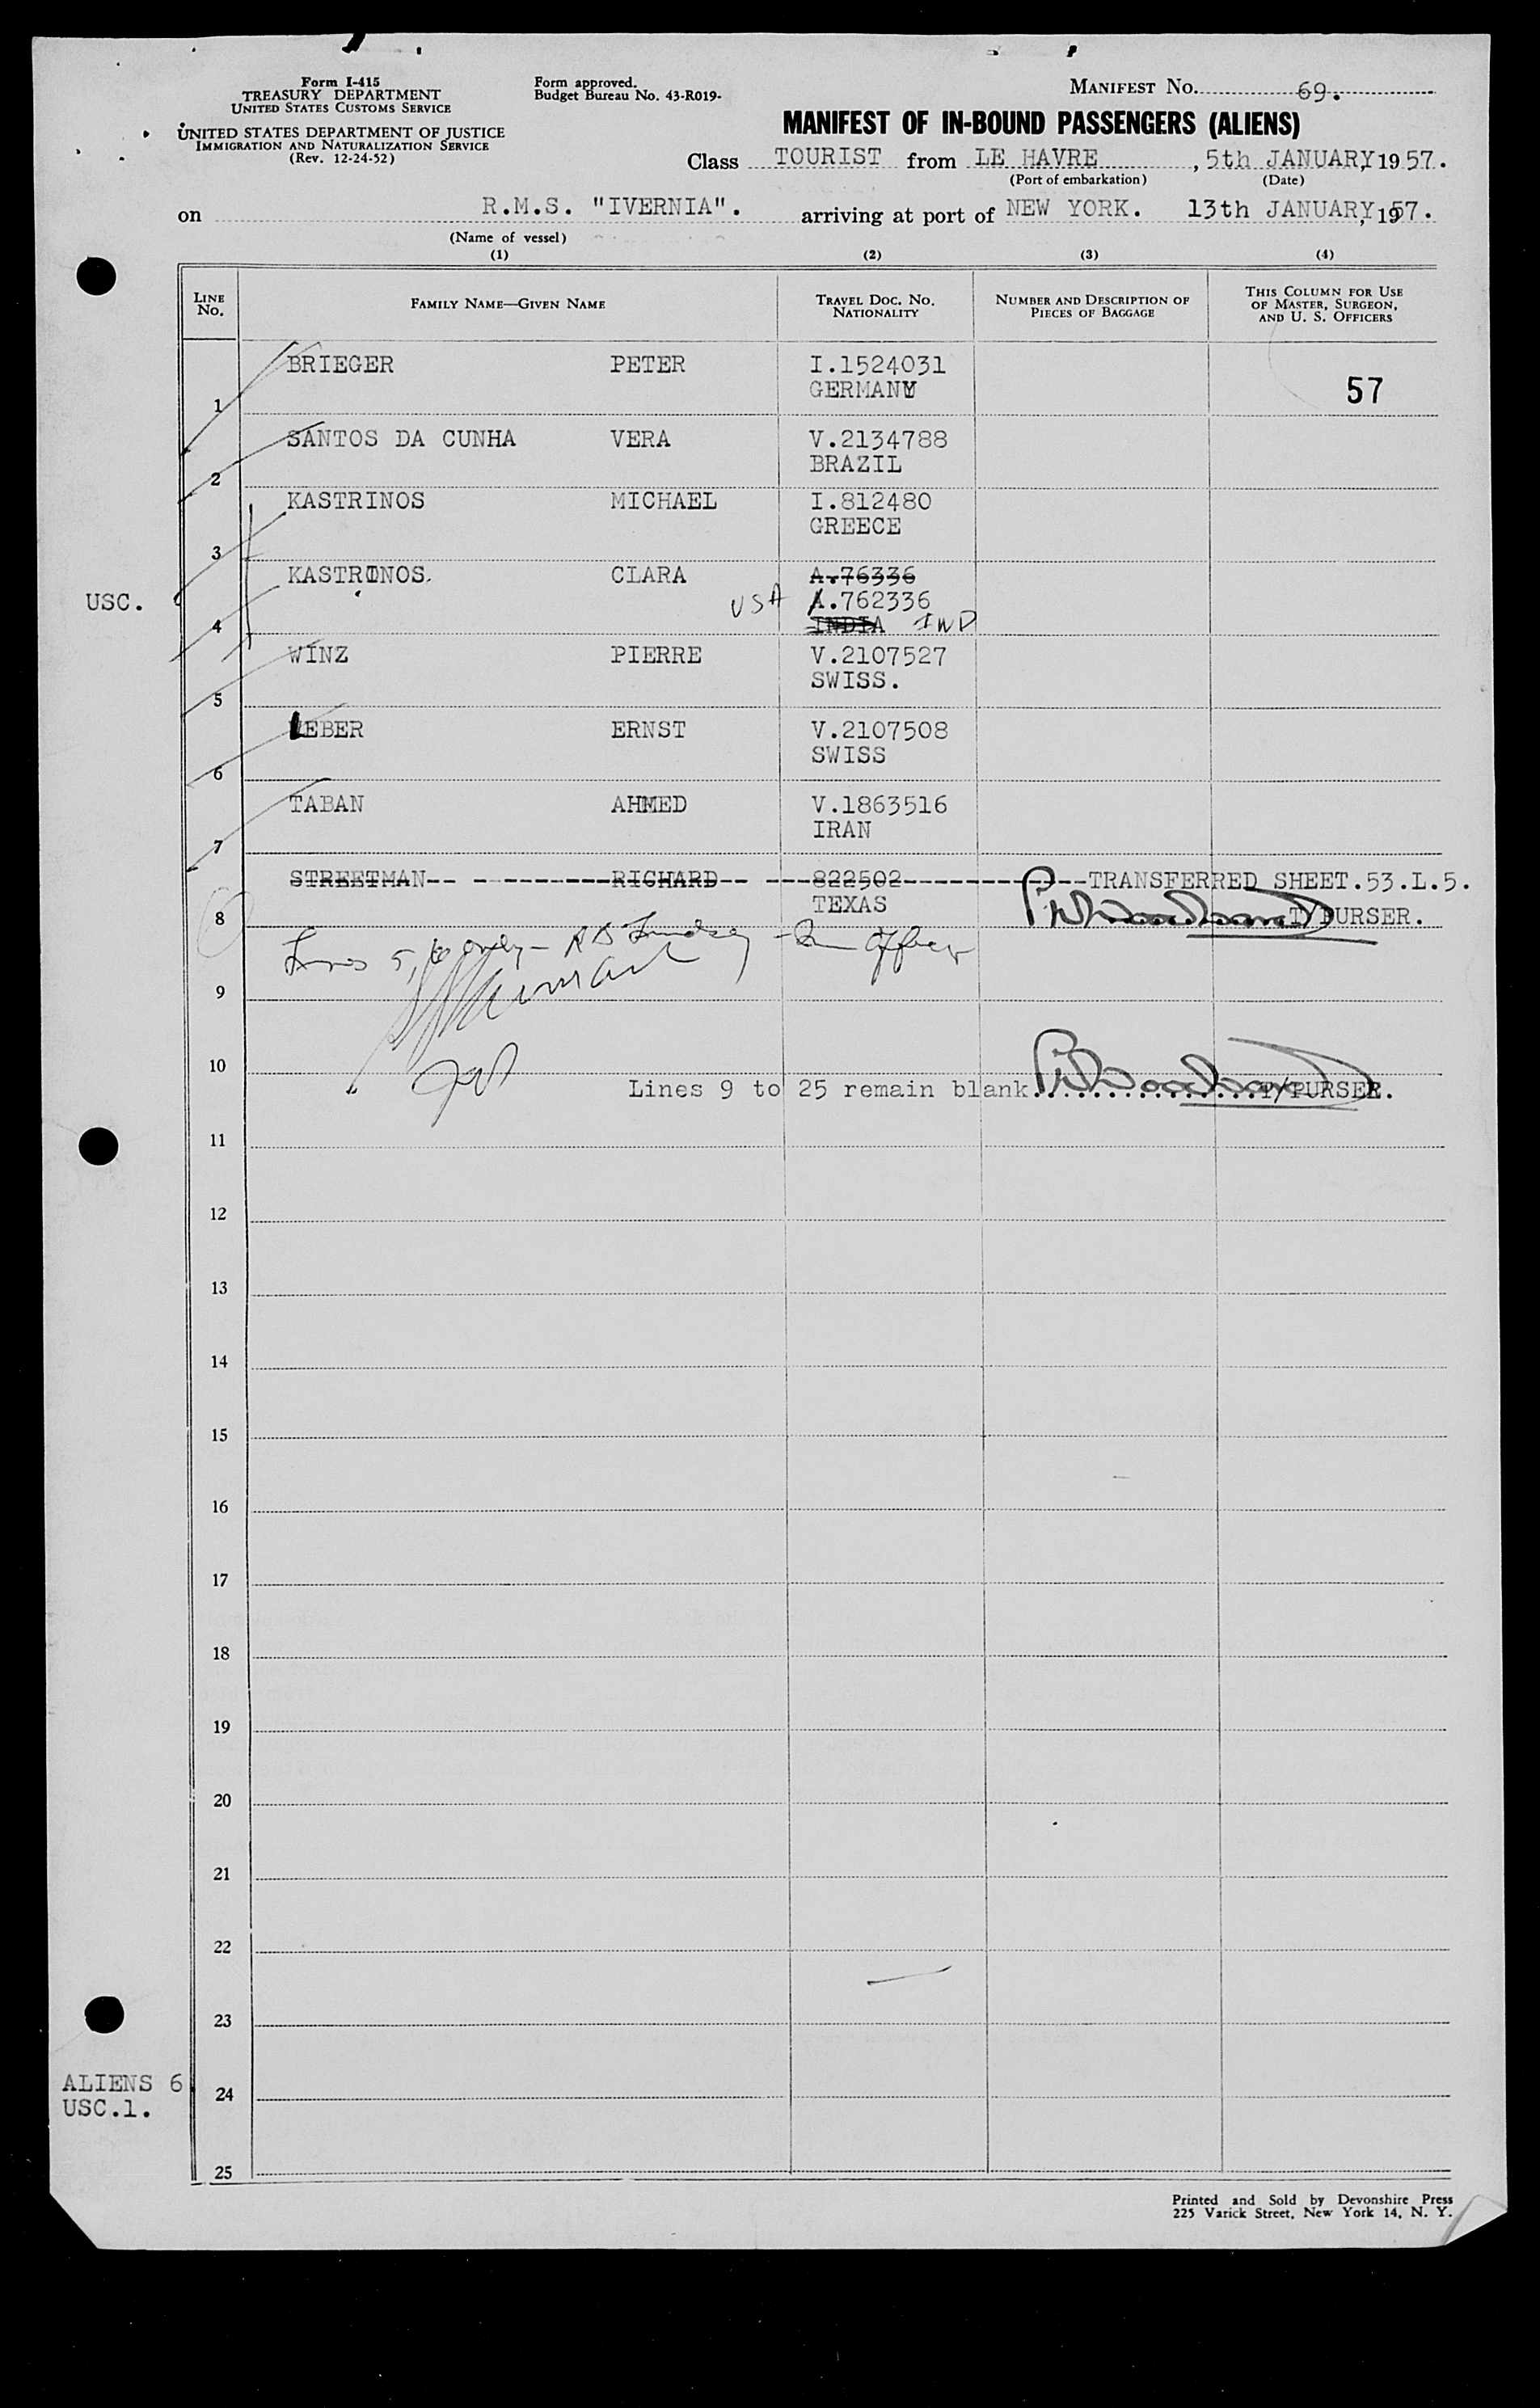 Form I-415
TREASURY DEPARTMENT
UNITED STATES CUSTOMS SERVICE
UNITED STATES DEPARTMENT OF JUSTICE
IMMIGRATION AND NATURALIZATION SERVICE
(Rev. 12-24-52)
Form approved.
Budget Bureau No. 43-R019-
MANIFEST No. 69.
MANIFEST OF IN-BOUND PASSENGERS (ALIENS)
Class TOURIST from LE HAVRE, 5th JANUARY, 1957.
(Port of embarkation) (Date)
on R.M.S. "IVERNIA". arriving at port of NEW YORK. 13th JANUARY, 1957.
(Name of vessel)
(1) (2) (3) (4)
LINE No. FAMILY NAME—GIVEN NAME TRAVEL DOC. NO. NATIONALITY NUMBER AND DESCRIPTION OF PIECES OF BAGGAGE THIS COLUMN FOR USE OF MASTER, SURGEON, AND U. S. OFFICERS
BRIEGER PETER I.1524031
1 GERMANY 57
SANTOS DA CUNHA VERA V.2134788
2 BRAZIL
KASTRINOS MICHAEL I.812480
3 GREECE
KASTRINOS. CLARA A.76336
USC. USA A.762336
4 INDIA IND
WINZ PIERRE V.2107527
5 SWISS.
WEBER ERNST V.2107508
6 SWISS
TABAN AHMED V.1863516
7 IRAN
STREETMAN-- ---------RICHARD-- ---822502------------TRANSFERRED SHEET.53.L.5.
8 TEXAS T/PURSER.
Lines 5, 6 only - Lindsey - Officer
9
10
Lines 9 to 25 remain blank................P/PURSER.
11
12
13
14
15
16
17
18
19
20
21
22
23
ALIENS 6
24
USC.1.
25
Printed and Sold by Devonshire Press
225 Varick Street, New York 14, N. Y.